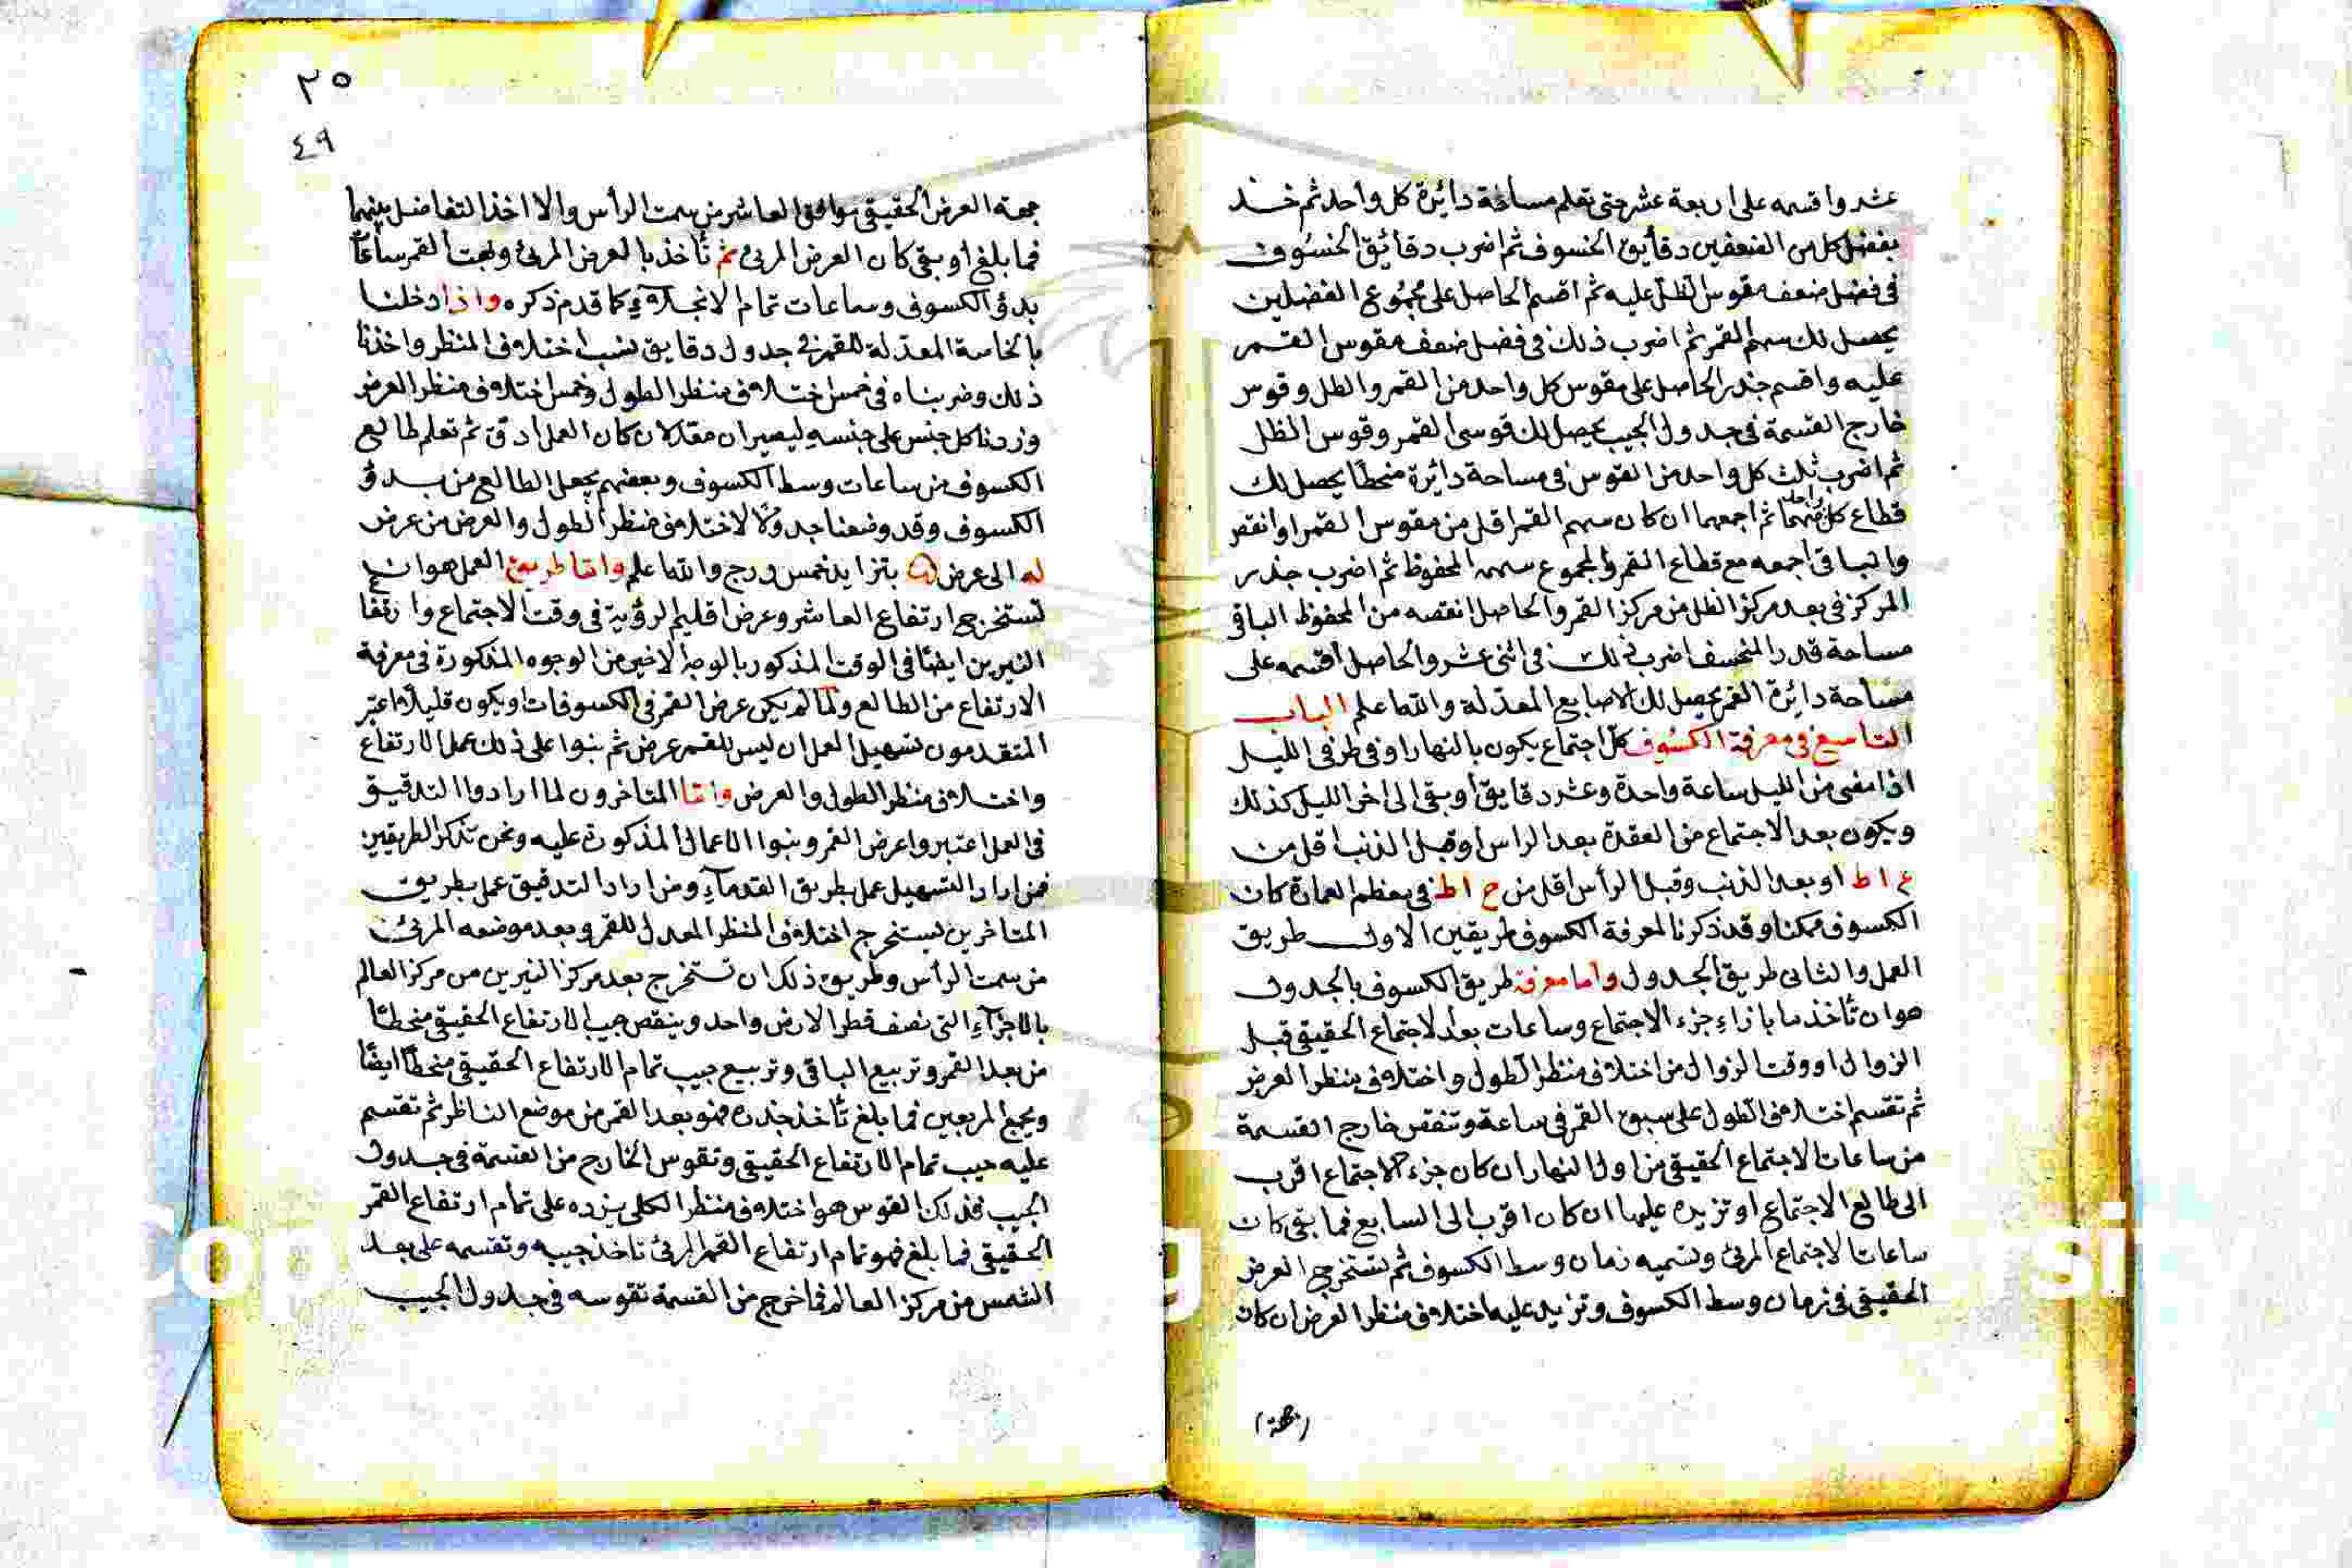 عشر واقسمه على اربعة عشر حتى تعلم مساحة دائرة كل واحد ثم خذ
بفضل كل من الضعفين دقايق الخسوف ثم اضرب دقائق الخسوف
فى فضل ضعف مقوس الظل عليه ثم اقسم الحاصل على مجموع الفضلين
يحصل لك سهم القمر ثم اضرب ذلك فى فضل ضعف مقوس القمر
عليه واقسم جذر الحاصل على مقوس كل واحد من القمر والظل وقوس
خارج القسمة فى جدول الجيب يحصل لك قوسى القمر وقوس الظل
ثم اضرب ثلث كل واحد من القوس فى مساحة دائرة منحطا يحصل لك
قطاع كل واحد منهما ثم اجمعهما ان كان سهم القمر اقل من مقوس القمر او انقص
والباقى اجمعه مع قطاع القمر والمجموع سمه المحفوظ ثم اضرب جذر
المركز فى بعد مركز الظل من مركز القمر والحاصل انقصه من المحفوظ الباقى
مساحة قدر المنخسف اضرب ذلك فى اثنى عشر والحاصل اقسمه على
مساحة دائرة القمر يحصل لك الاصابع المعدلة والله اعلم الباب
التاسع فى معرفة الكسوف كل اجتماع يكون بالنهار او فى طرفى الليل
اذا مضى من الليل ساعة واحدة وعشر دقايق او بقى الى اخر الليل كذلك
ويكون بعد الاجتماع من العقدة بعد الراس او قبل الذنب اقل من
او بعد الذنب وقبل الرأس اقل من ح اط فى معظم العمارة كان
الكسوف ممكنا وقد ذكرنا لمعرفة الكسوف طريقين الاول طريق
العمل والثانى طريق الجدول واما معرفة طريق الكسوف بالجدول
هو ان تأخذ ما بازاء جزء الاجتماع وساعات بعد الاجتماع الحقيقى قبل
الزوال او وقت الزوال من اختلاف منظر الطول واختلاف منظر العرض
ثم تقسم اختلاف الطول على سبق القمر فى ساعة وتنقص خارج القسمة
من ساعات الاجتماع الحقيقى من اول النهار ان كان جزء الاجتماع اقرب
الى طالع الاجتماع او تزيده عليها ان كان اقرب الى السابع فما بقى كان
ساعات الاجتماع المرئ وتسميه زمان وسط الكسوف ثم تستخرج العرض
الحقيقى فى زمان وسط الكسوف وتزيد عليه اختلاف منظر العرض ان كان
(جهة)
٢٥
٤٩
جهة العرض الحقيقى موافق العاشر من سمت الرأس والا اخذ التفاضل بينهما
فما بلغ او بقى كان العرض المرئ ثم تأخذ بالعرض المرئ وبهت القمر ساعات
بدؤ الكسوف وساعات تمام الانجلاء كما قدم ذكره واذا دخلنا
بالخاصة المعدلة للقمر فى جدول دقايق نسب اختلاف المنظر واخذنا
ذلك وضربناه فى خمس اختلاف منظر الطول وخمس اختلاف منظر العرض
وزدنا كل جنس على جنسه ليصيران معدلان كان العمل ادق ثم تعلم طالع
الكسوف من ساعات وسط الكسوف وبعضهم يجعل الطالع من بدؤ
الكسوف وقد وضعنا جدولا لاختلاف منظر الطول والعرض من عرض
له الى عرض بتزايد خمس درج والله اعلم واما طريق العمل هو ان
تستخرج ارتفاع العاشر وعرض اقليم الرؤية فى وقت الاجتماع وارتفاع
النيرين ايضا فى الوقت المذكور بالوجه الاخير من الوجوه المذكورة فى معرفة
الارتفاع من الطالع ولما لم يكن عرض القمر فى الكسوفات او يكون قليلا اعتبر
المتقدمون تسهيل العمل ان ليس للقمر عرض ثم بنوا على ذلك عمل الارتفاع
واختلاف منظر الطول والعرض واما المتاخرون لما ارادوا التدقيق
فى العمل اعتبروا عرض القمر وبنوا الاعمال المذكورة عليه ونحن نذكر الطريقين
فمن اراد التسهيل عمل بطريق القدماء ومن اراد التدقيق عمل بطريق
المتاخرين ليستخرج اختلاف المنظر المعدل للقمر وبعد موضعه المرئى
من سمت الرأس وطريق ذلك ان تستخرج بعد مركز النيرين من مركز العالم
بالاجزاء التى نصف قطر الارض واحد وينقص جيب الارتفاع الحقيقى منحطا
من بعد القمر وتربيع الباقى وتربيع جيب تمام الارتفاع الحقيقى منحطا ايضا
ويجمع المربعين فما بلغ تأخذ جذره فهو بعد القمر من موضع الناظر ثم تقسم
عليه جيب تمام الارتفاع الحقيقى وتقوس الخارج من القسمة فى جدول
الجيب فذلك القوس هو اختلاف منظر الكلى يزده على تمام ارتفاع القمر
الحقيقى فما بلغ فهو تمام ارتفاع القمر المرئ تاخذ جيبه وتقسمه على بعد
الشمس من مركز العالم فما خرج من القسمة تقوسه فى جدول الجيب